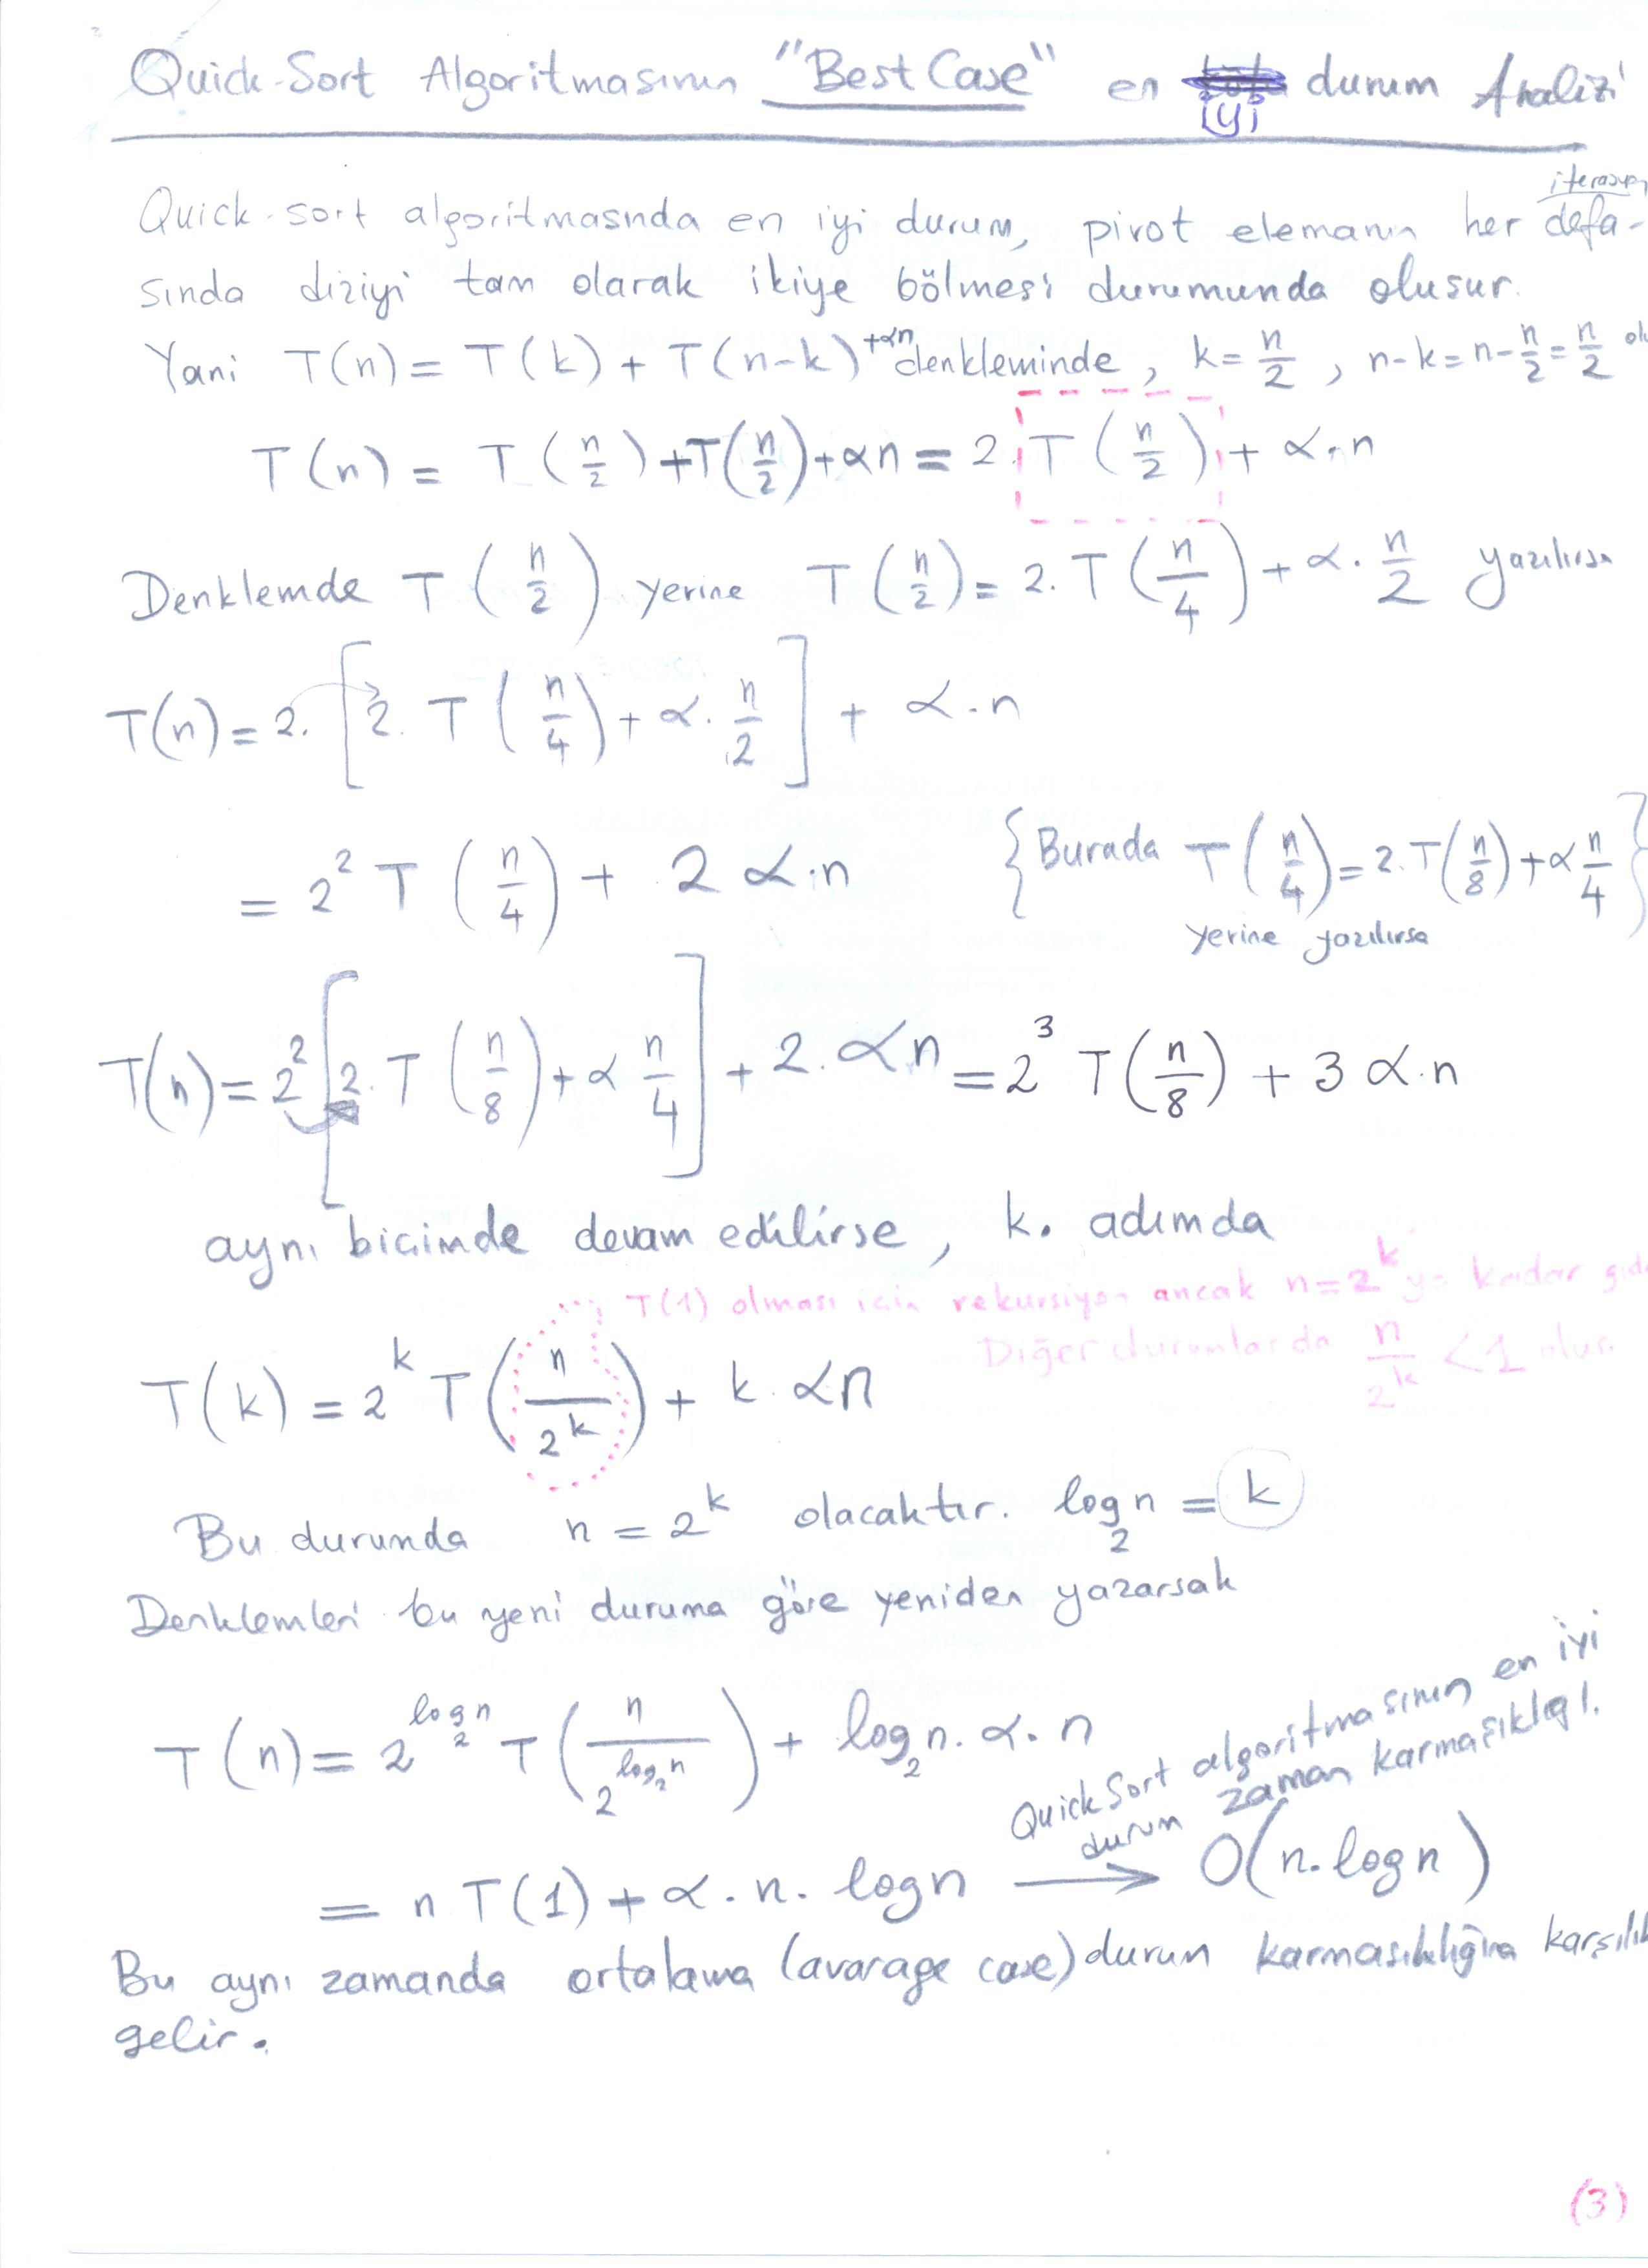 Quick-Sort Algoritmasının "Best Case" en iyi durum Analizi
iterasyon
Quick-sort algoritmasında en iyi durum, pivot elemanın her defa-
sında diziyi tam olarak ikiye bölmesi durumunda olusur.
Yani T(n) = T(k) + T(n-k) +αn denkleminde, k = n/2 , n-k = n - n/2 = n/2
T(n) = T(n/2) + T(n/2) + αn = 2 T(n/2) + α.n
Denklemde T(n/2) yerine T(n/2) = 2.T(n/4) + α.n/2 yazılırsa
T(n) = 2.[2.T(n/4) + α.n/2] + α.n
= 2² T(n/4) + 2 α.n {Burada T(n/4) = 2.T(n/8) + α n/4}
yerine yazılırsa
T(n) = 2²[2.T(n/8) + α n/4] + 2.αn = 2³ T(n/8) + 3 α.n
aynı biçimde devam edilirse, k. adımda
T(1) olması için rekursiyon ancak n=2^k ya kadar
Diğer durumlarda n/2^k < 1 olur.
T(k) = 2^k T(n/2^k) + k.αn
Bu durumda n = 2^k olacaktır. log₂n = k
Denklemleri bu yeni duruma göre yeniden yazarsak
T(n) = 2^(log₂n) T(n/2^(log₂n)) + log₂n.α.n
QuickSort algoritmasının en iyi
durum zaman karmaşıklığı.
= n T(1) + α.n.logn → O(n.logn)
Bu aynı zamanda ortalama (avarage case) durum karmasıklığına
gelir.
(3)